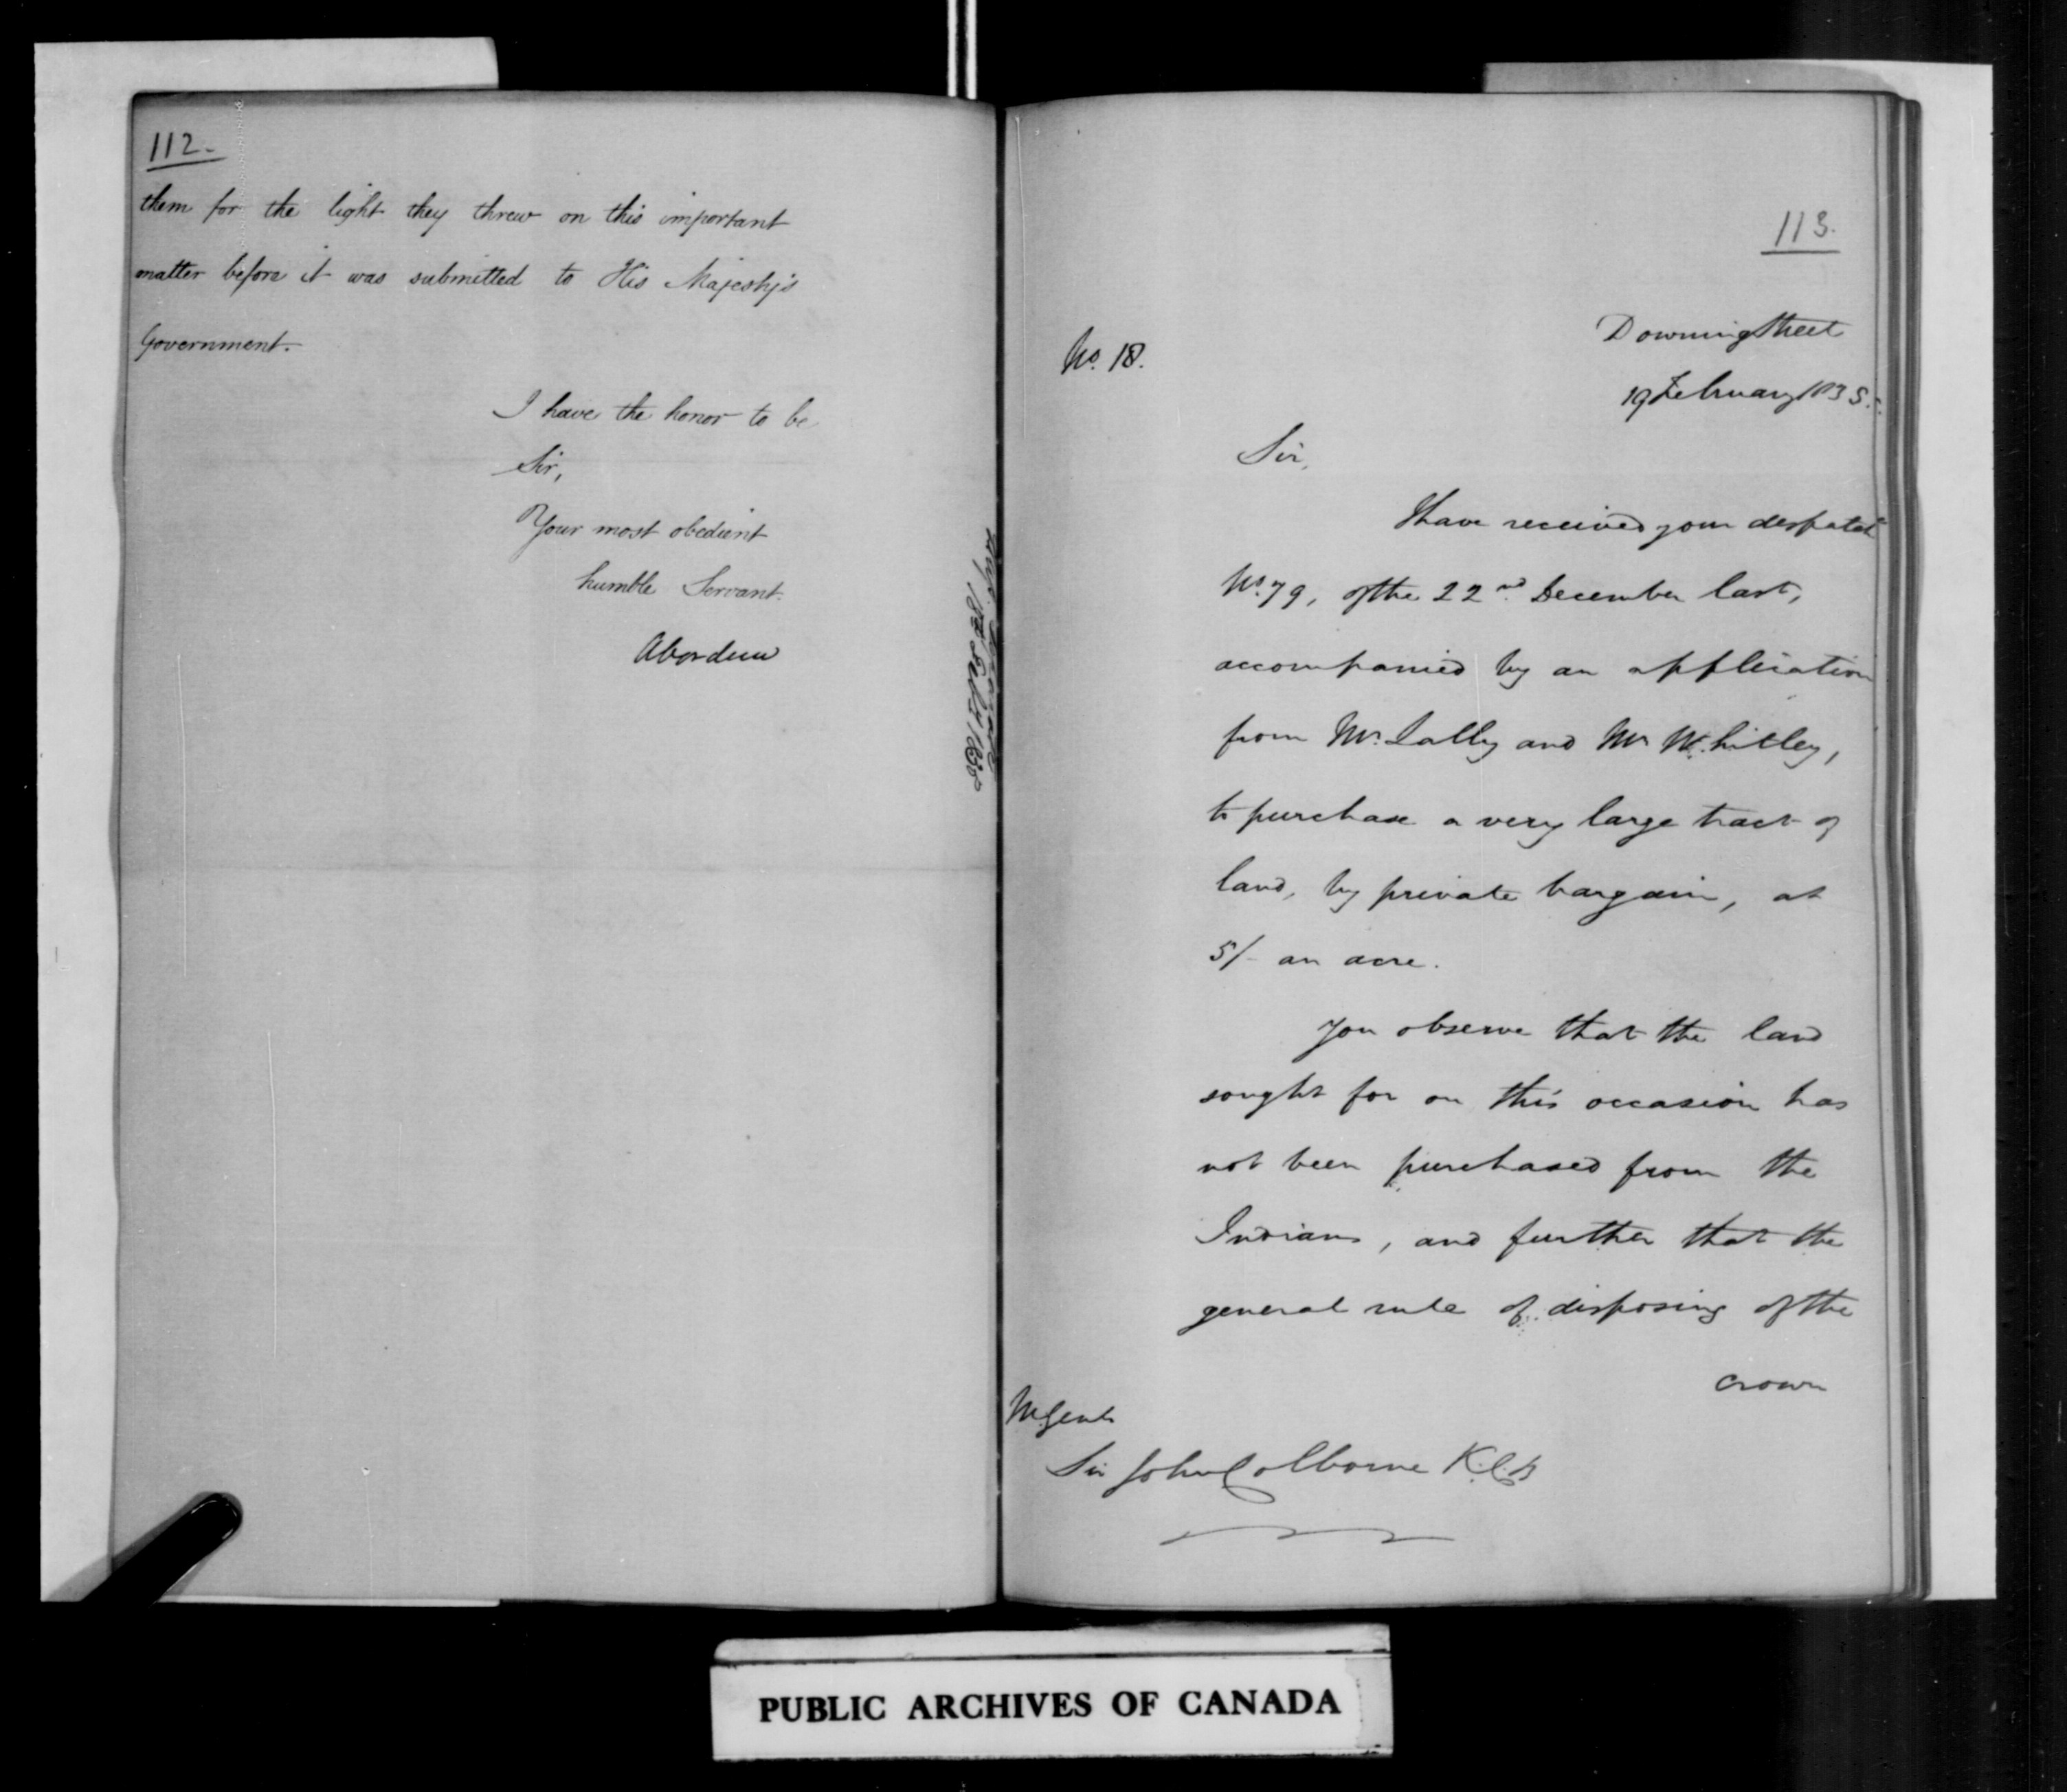 112.
them for the light they threw on this important
matter before it was submitted to His Majesty's
Government.
I have the honor to be
Sir,
Your most obedient
humble Servant.
Aberdeen
113.
No. 18.
Downing Street
19 February 1835.
Sir,
I have received your despatch
No. 79, of the 22nd December last,
accompanied by an application
from Mr. Lally and Mr Whitley,
to purchase a very large tract of
land, by private bargain, at
5/- an acre.
You observe that the land
sought for on this occasion has
not been purchased from the
Indians, and further that the
general rule of disposing of the
crown
M Genl
Sir John Colborne K.C.B
PUBLIC ARCHIVES OF CANADA